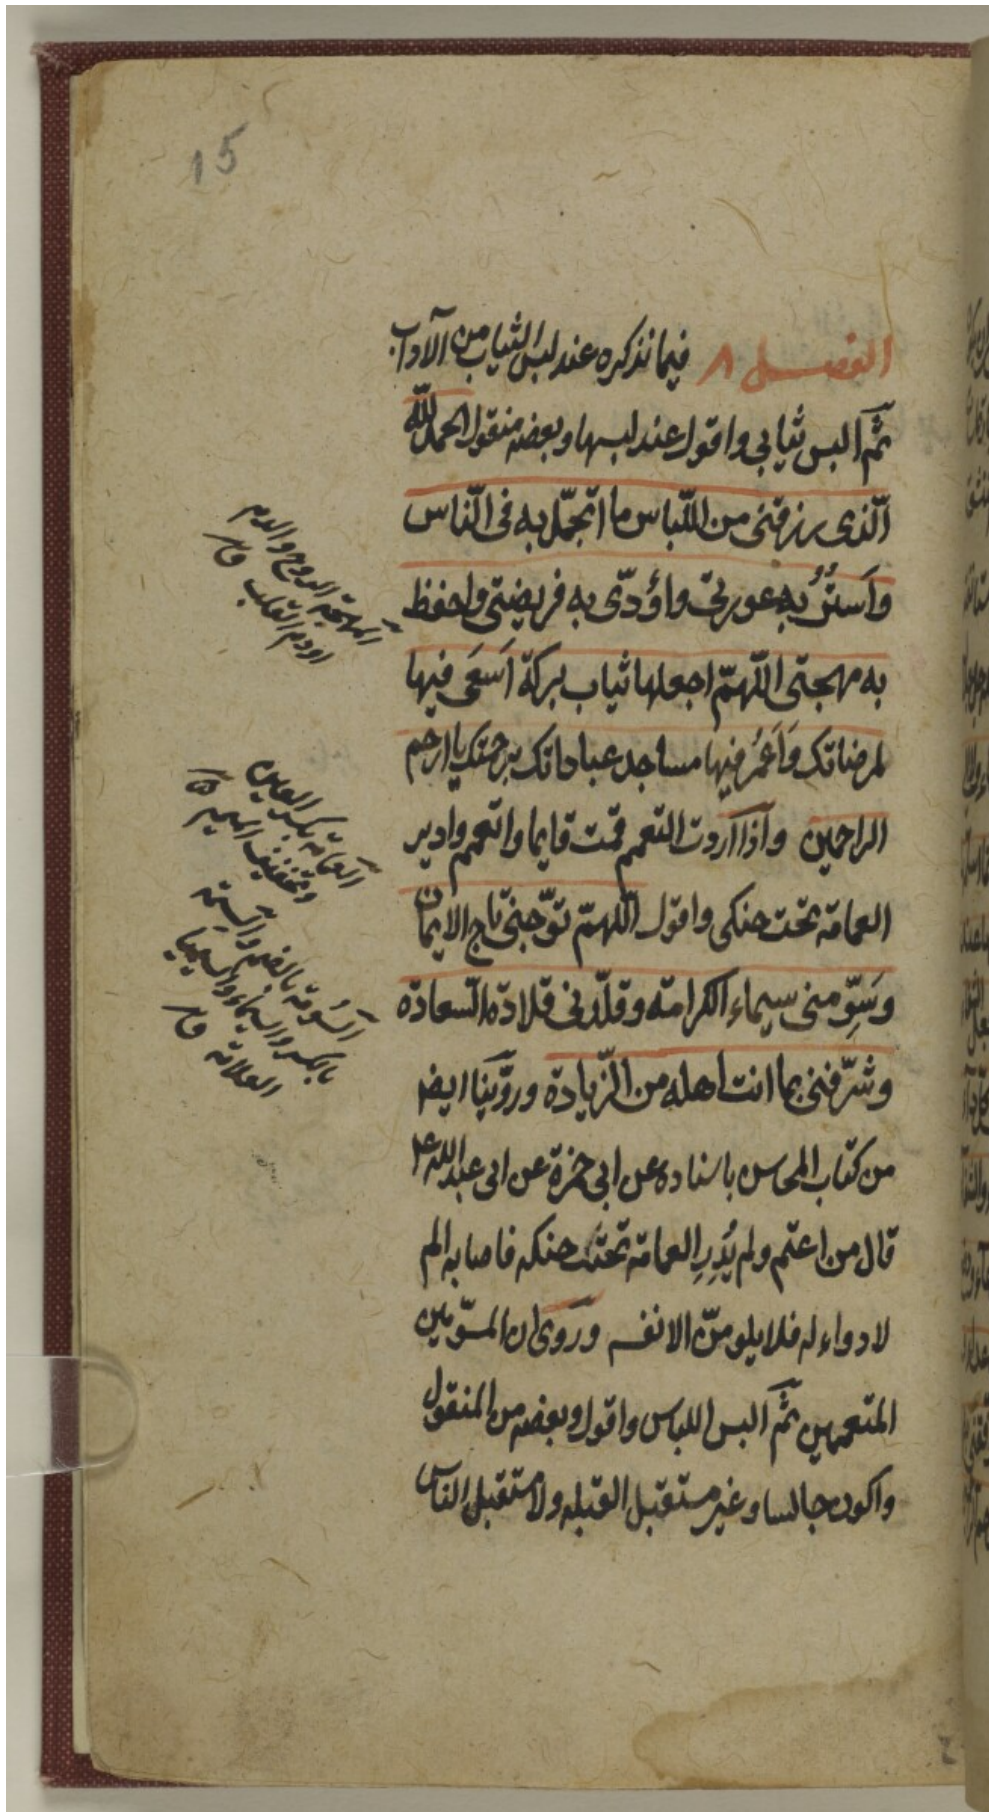 15
الفصل ٨ فيما نذكره عند لبس الثياب من الآداب
ثم البس ثيابي واقول عند لبسها وبعضه منقول الحمد لله
الّذى رزقنى من اللّباس ما اتجمّل به فى النّاس
وَاَستُرُ بِهِ عورتى واؤدّى به فريضتى واحفظ
به مهجتى اللّهمّ اجعلها ثياب بركة اَسَعَى فيها
لمرضاتك وَاَعمُر فيها مساجد عباداتك برحمتك يا ارحم
الراحمين واذا اردت التعمم قمت قايما واتعمم وادير
العمامة تحت حنكى واقول اللّهمّ توّجنى تاج الايمان
وسَوِّمنى سيماء الكرامة وقلّدنى قلادة السّعادة
وشرّفنى بما انت اهله من الزّيادة وروّينا ايضا
من كتاب المحاسن باسناده عن ابى حمزة عن ابى عبد الله ع
قال من اعتم ولم يُدِرِ العمامة تحت حنكه فاصابه الم
لا دواء له فلا يلومنّ الا نفسه وروى ان المسوّمين
المتعممين ثم البس اللباس واقول وبعضه من المنقول
واكون جالسا وغير مستقبل القبله ولا مستقبل الناس
المهجة الروح والدم
او دم القلب ق
العمامة بكسر العين
وتخفيف الميم
السُومة بالضم والسيمة
بالكسر والسيماء والسيمياء
العلامة ق